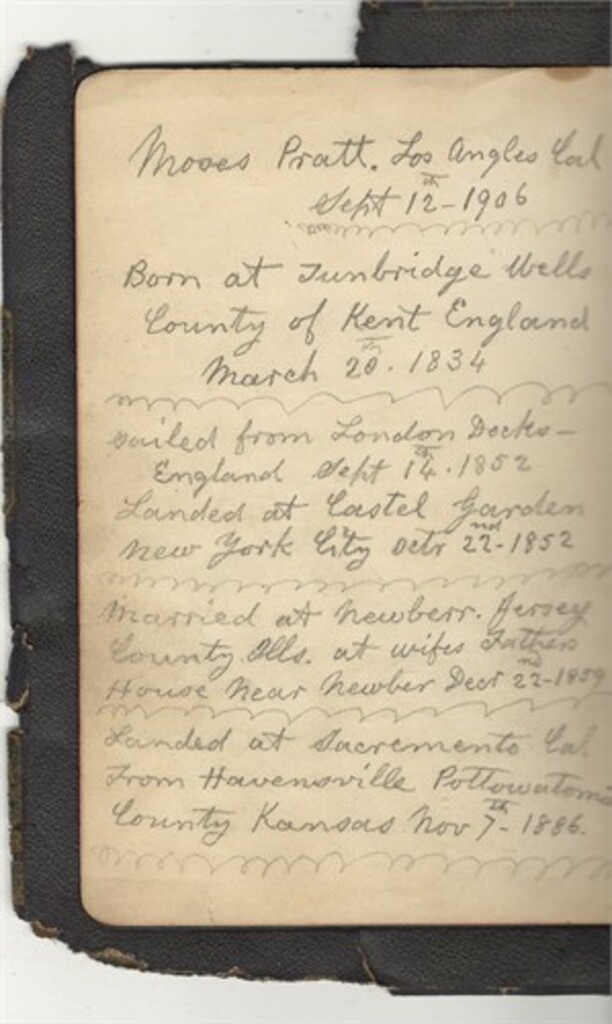 Moses Pratt. Los Angles Cal
Sept 12th - 1906
Born at Tunbridge Wells
County of Kent England
March 20th. 1834
Sailed from London Docks -
England Sept 14th. 1852
Landed at Castel Garden
New York City Octr 22nd - 1852
Married at Newberr. Jersey
County. Ills. at wifes Fathers
House Near Newber Decr 22nd - 1859
Landed at Sacremento Cal
From Havensville Pottowatomie
County Kansas Nov 7th - 1886.